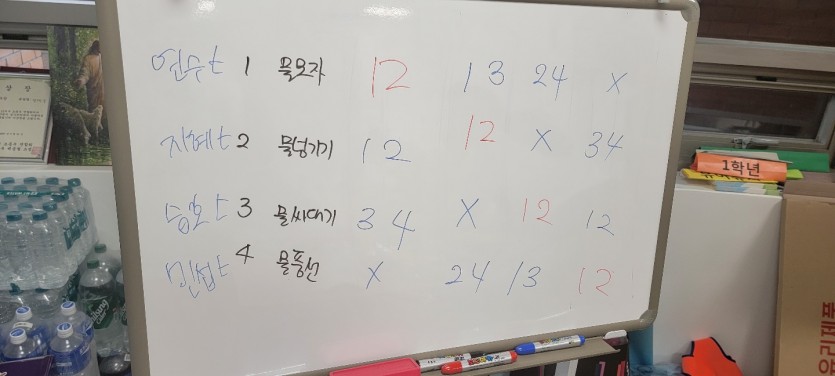 연수t 1 물모자 12 13 24 X
지혜t 2 물넘기기 12 12 X 34
승호t 3 물싸대기 34 X 12 12
민섭t 4 물풍선 X 24 13 12
1학년